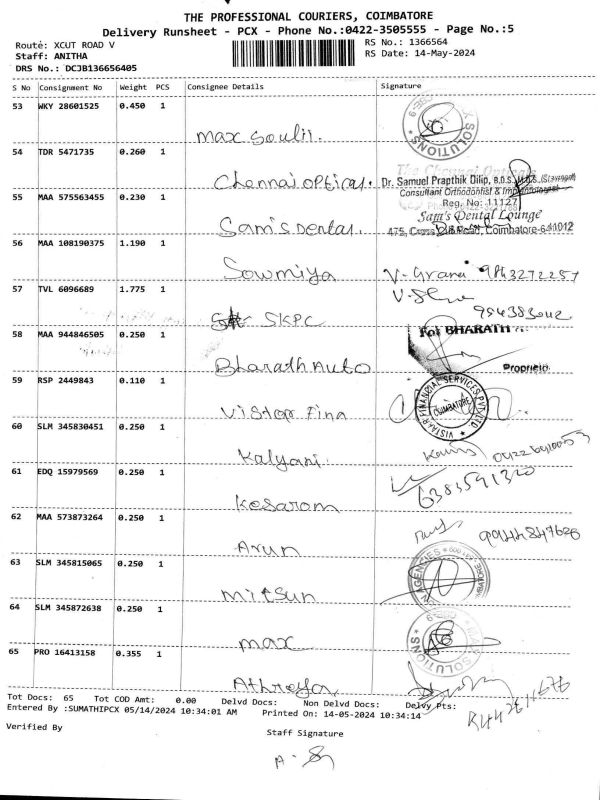 THE PROFESSIONAL COURIERS, COIMBATORE
Delivery Runsheet - PCX - Phone No.:0422-3505555 - Page No.:5
Route: XCUT ROAD V
Staff: ANITHA
DRS No.: DCJB136656405
RS No.: 1366564
RS Date: 14-May-2024
S No Consignment No Weight PCS Consignee Details Signature
53 WKY 28601525 0.450 1
Max Soulii.
SOLUTIONS
54 TDR 5471735 0.260 1
Chennai optical.
The Chennai Opticals
Dr. Samuel Prapthik Dilip, B.D.S.,
Consultant Orthodontist & Implantologist
55 MAA 575563455 0.230 1
Reg. No: 11127
Sam's Dental.
Sam's Dental Lounge
475, Cross Cut Road, Coimbatore-641012
56 MAA 108190375 1.190 1
Sowmiya
57 TVL 6096689 1.775 1
SKPC
58 MAA 944846505 0.250 1
For BHARATH
Bharath Auto
Proprietor
59 RSP 2449843 0.110 1
Vistar Fina
FINANCIAL SERVICES PVT LTD
COIMBATORE
60 SLM 345830451 0.250 1
Kalyani
61 EDQ 15979569 0.250 1
Kesarom
6383591320
62 MAA 573873264 0.250 1
Arun
63 SLM 345815065 0.250 1
Mitsun
AGENCIES
64 SLM 345872638 0.250 1
max
SOLUTIONS
65 PRO 16413158 0.355 1
Athreya
Tot Docs: 65 Tot COD Amt: 0.00 Delvd Docs: Non Delvd Docs: Delvy Pts:
Entered By :SUMATHIPCX 05/14/2024 10:34:01 AM Printed On: 14-05-2024 10:34:14
Verified By
Staff Signature